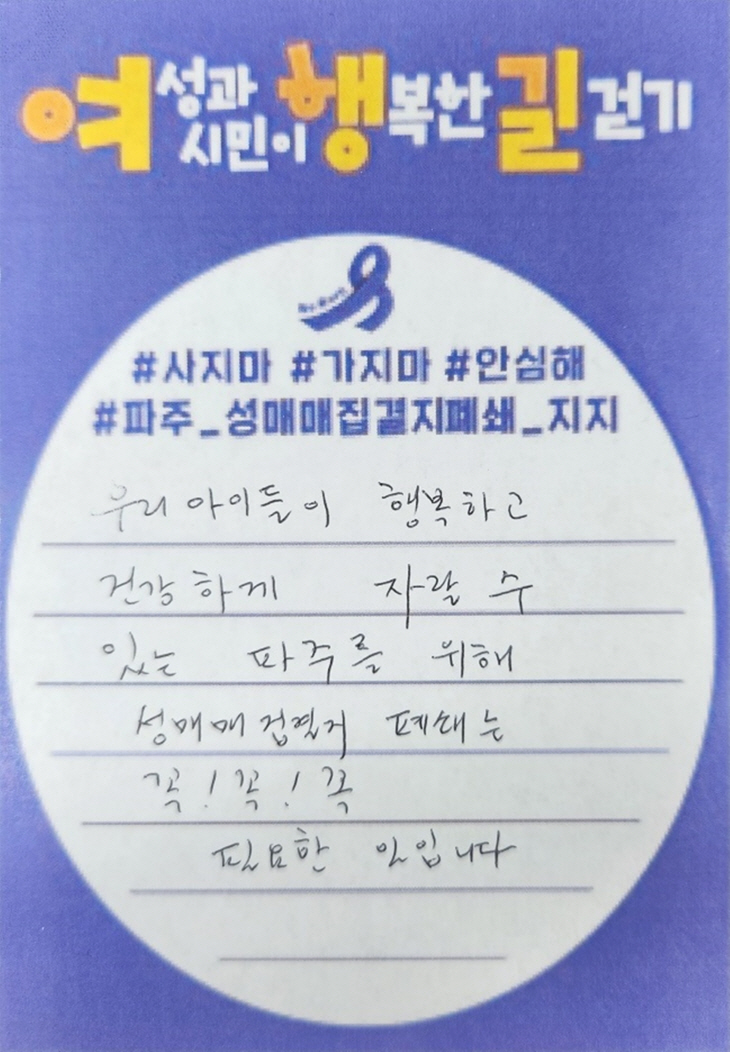 여성과 시민이 행복한 길 걷기
#사지마 #가지마 #안심해
#파주_성매매집결지폐쇄_지지
우리 아이들이 행복하고
건강하게 자랄 수
있는 파주를 위해
성매매 집결지 폐쇄는
꼭! 꼭! 꼭
필요한 일입니다